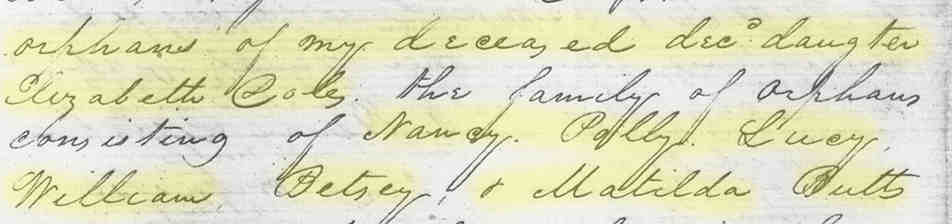 orphans of my deceased decd daugter
Elizabeth Cole. the family of orphans
consisting of Nancy. Polly. Lucy,
William, Betsey, & Matilda Butts